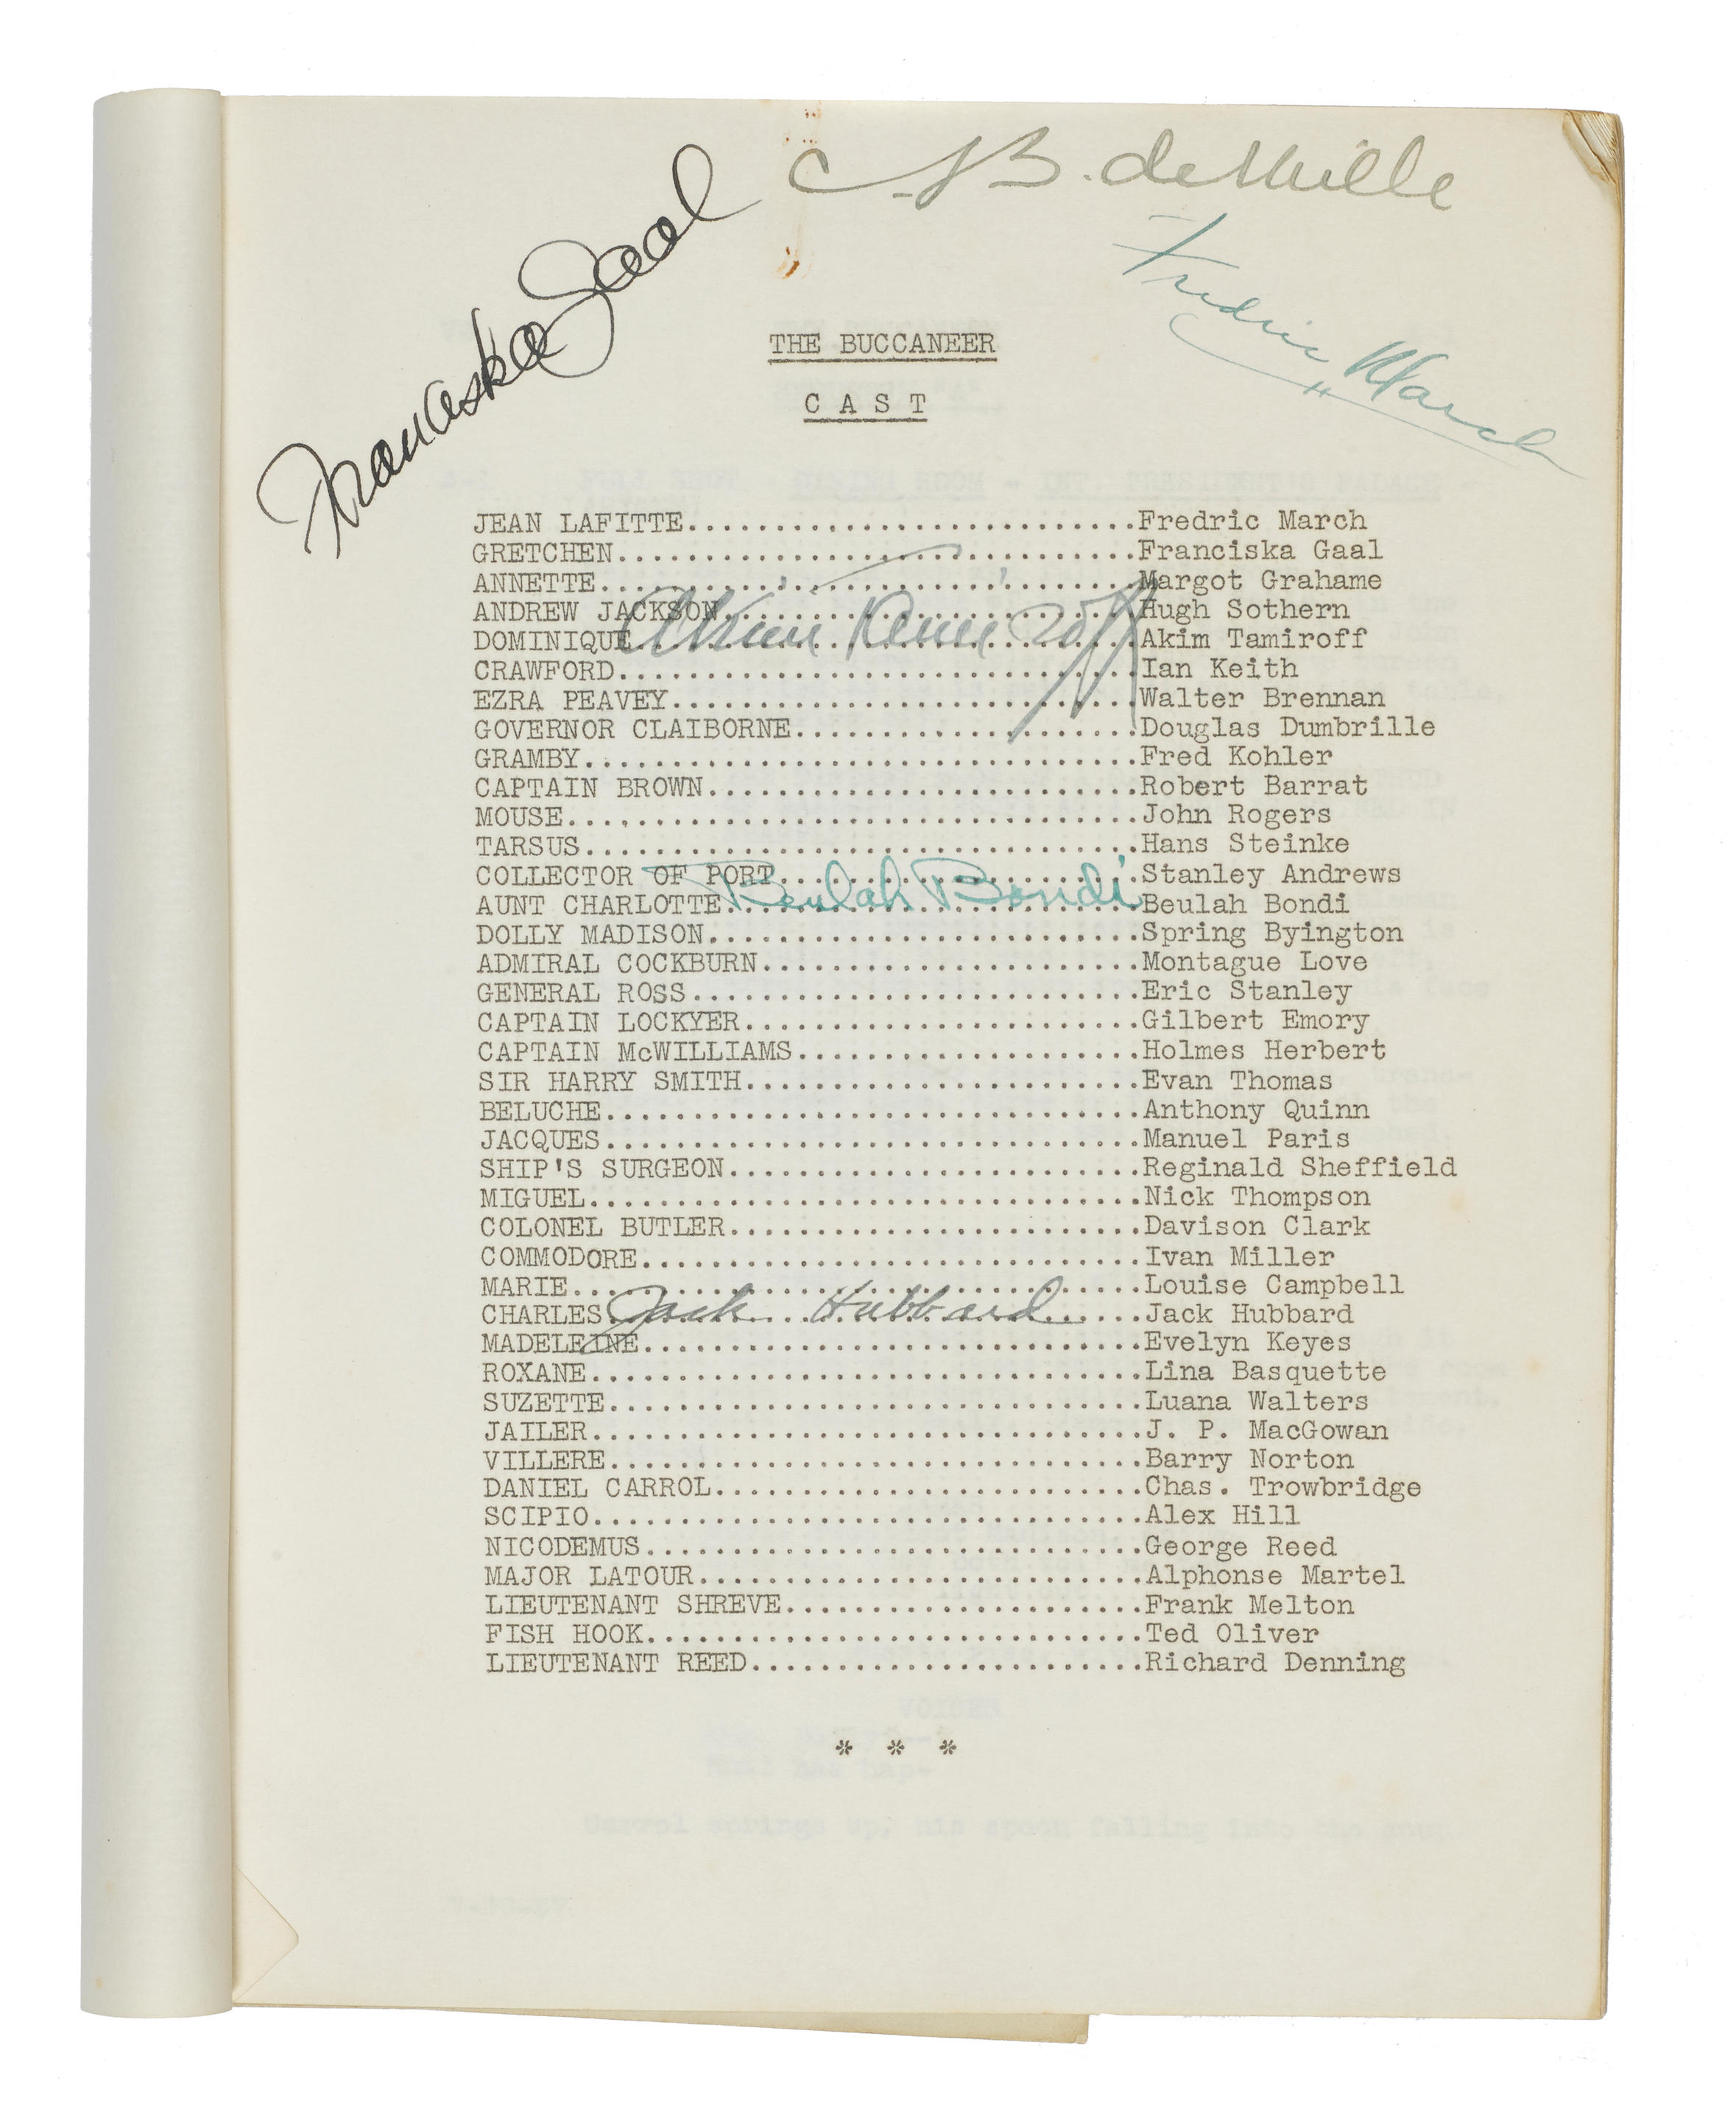 C B. deMille
Franciska Gaal
Fredric March
THE BUCCANEER
CAST
JEAN LAFITTE..........................Fredric March
GRETCHEN..............................Franciska Gaal
ANNETTE...............................Margot Grahame
ANDREW JACKSON........................Hugh Sothern
Akim Tamiroff
DOMINIQUE.............................Akim Tamiroff
CRAWFORD..............................Ian Keith
EZRA PEAVEY...........................Walter Brennan
GOVERNOR CLAIBORNE....................Douglas Dumbrille
GRAMBY................................Fred Kohler
CAPTAIN BROWN.........................Robert Barrat
MOUSE.................................John Rogers
TARSUS................................Hans Steinke
COLLECTOR OF PORT.....................Stanley Andrews
Beulah Bondi
AUNT CHARLOTTE........................Beulah Bondi
DOLLY MADISON.........................Spring Byington
ADMIRAL COCKBURN......................Montague Love
GENERAL ROSS..........................Eric Stanley
CAPTAIN LOCKYER.......................Gilbert Emory
CAPTAIN McWILLIAMS....................Holmes Herbert
SIR HARRY SMITH.......................Evan Thomas
BELUCHE...............................Anthony Quinn
JACQUES...............................Manuel Paris
SHIP'S SURGEON........................Reginald Sheffield
MIGUEL................................Nick Thompson
COLONEL BUTLER........................Davison Clark
COMMODORE.............................Ivan Miller
MARIE.................................Louise Campbell
Jack Hubbard
CHARLES...............................Jack Hubbard
MADELEINE.............................Evelyn Keyes
ROXANE................................Lina Basquette
SUZETTE...............................Luana Walters
JAILER................................J. P. MacGowan
VILLERE...............................Barry Norton
DANIEL CARROL.........................Chas. Trowbridge
SCIPIO................................Alex Hill
NICODEMUS.............................George Reed
MAJOR LATOUR..........................Alphonse Martel
LIEUTENANT SHREVE.....................Frank Melton
FISH HOOK.............................Ted Oliver
LIEUTENANT REED.......................Richard Denning
* * *